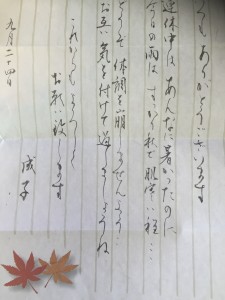 とても ありがとうございます
連休中は あんなに暑かったのに
今日の雨は すっかり秋で 肌寒い程…
どうぞ 体調を崩しませんよう…
お互い気を付けて過ごしましょうね
これからもよろしく
お願い致します
九月二十四日
成子